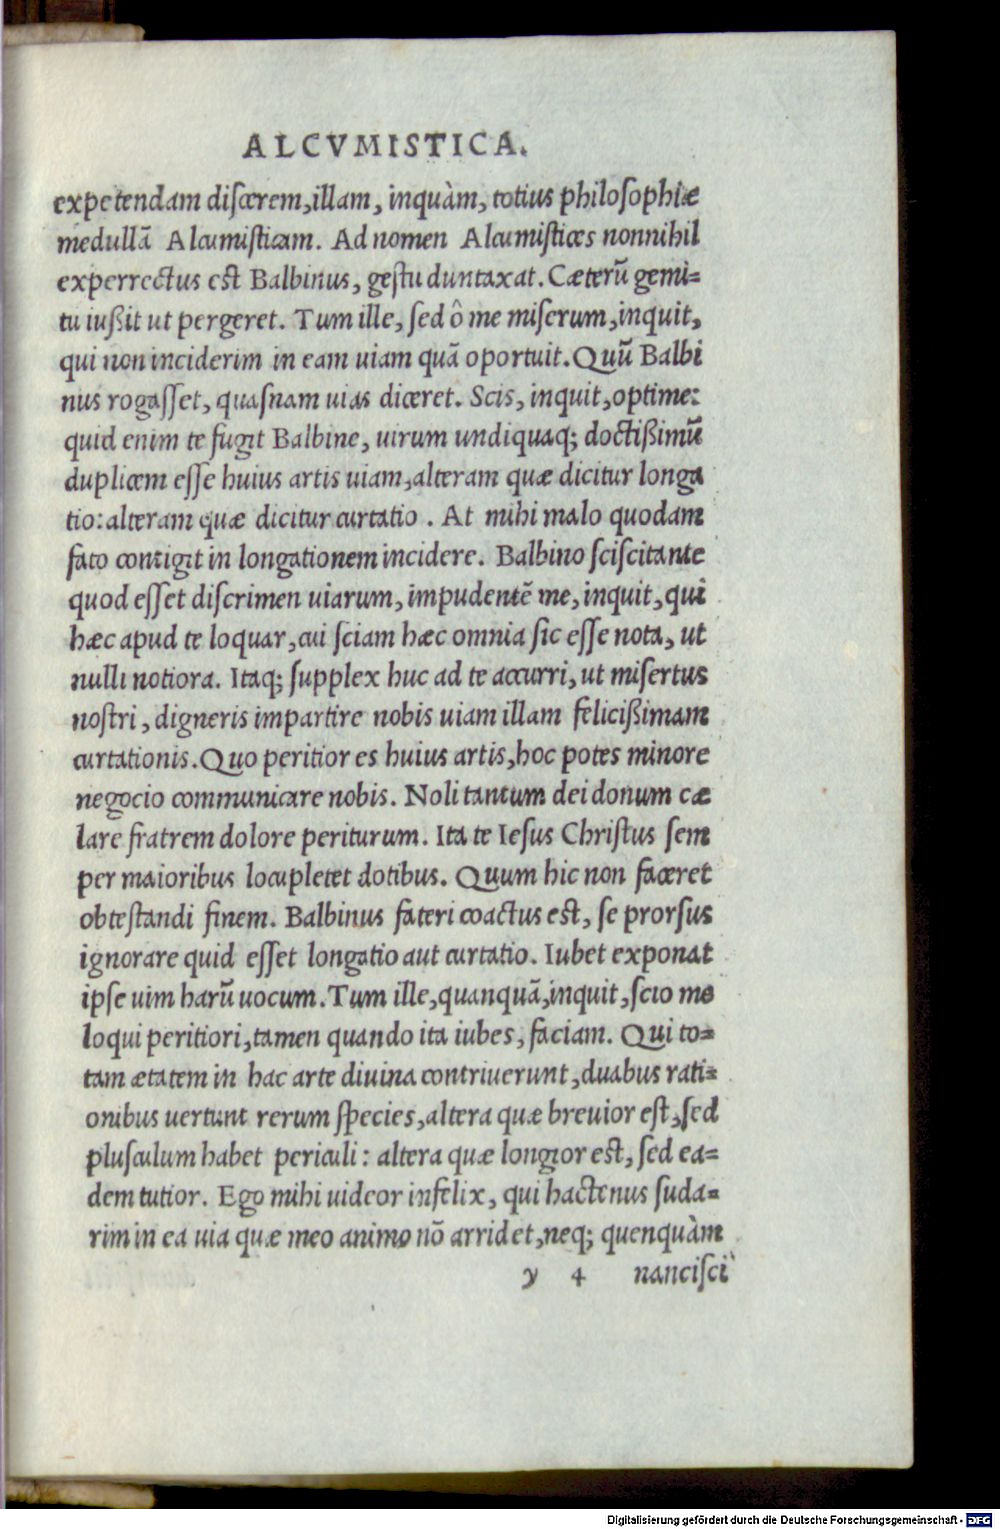 ALCVMISTICA.
expetendam discerem, illam, inquàm, totius philosophiæ
medullā Alcumisticam. Ad nomen Alcumistices nonnihil
experrectus est Balbinus, gestu duntaxat. Cæterū gemi=
tu iußit ut pergeret. Tum ille, sed ô me miserum, inquit,
qui non inciderim in eam uiam quā oportuit. Quū Balbi
nus rogasset, quasnam uias diceret. Scis, inquit, optime:
quid enim te fugit Balbine, uirum undiquaq; doctißimū
duplicem esse huius artis uiam, alteram quæ dicitur longa
tio: alteram quæ dicitur curtatio. At mihi malo quodam
fato contigit in longationem incidere. Balbino sciscitante
quod esset discrimen uiarum, impudentē me, inquit, qui
hæc apud te loquar, cui sciam hæc omnia sic esse nota, ut
nulli notiora. Itaq; supplex huc ad te accurri, ut misertus
nostri, digneris impartire nobis uiam illam felicißimam
curtationis. Quo peritior es huius artis, hoc potes minore
negocio communicare nobis. Noli tantum dei donum cæ
lare fratrem dolore periturum. Ita te Iesus Christus sem
per maioribus locupletet dotibus. Quum hic non faceret
obtestandi finem. Balbinus fateri coactus est, se prorsus
ignorare quid esset longatio aut curtatio. Iubet exponat
ipse uim harū uocum. Tum ille, quanquā, inquit, scio me
loqui peritiori, tamen quando ita iubes, faciam. Qui to=
tam ætatem in hac arte diuina contriuerunt, duabus rati=
onibus uertunt rerum species, altera quæ breuior est, sed
plusculum habet periculi: altera quæ longior est, sed ea=
dem tutior. Ego mihi uideor infelix, qui hactenus suda=
rim in ea uia quæ meo animo nō arridet, neq; quenquàm
y 4 nancisci
Digitalisierung gefördert durch die Deutsche Forschungsgemeinschaft - DFG